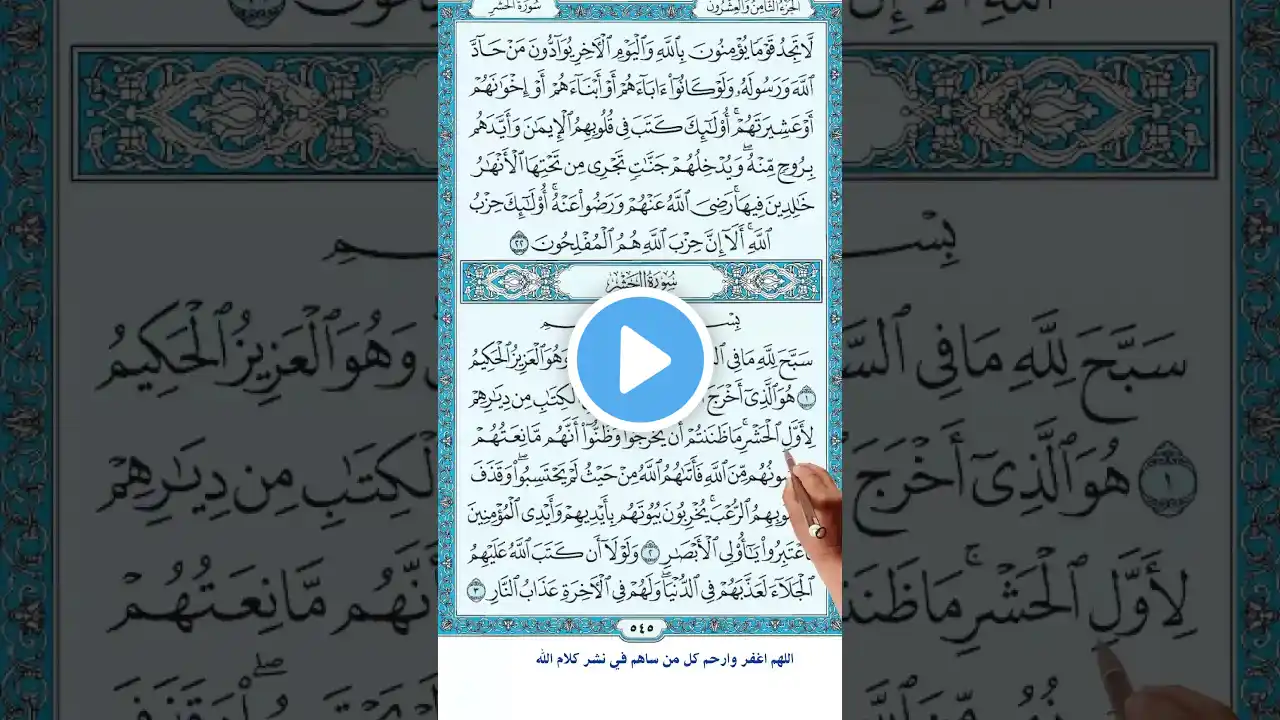 سُورَةُ الحَشْرِ
الجُزْءُ الثَّامِنُ وَالعِشْرُونَ
لَّا تَجِدُ قَوْمًا يُؤْمِنُونَ بِٱللَّهِ وَٱلْيَوْمِ ٱلْأَخِرِ يُوَآدُّونَ مَنْ حَآدَّ
ٱللَّهَ وَرَسُولَهُۥ وَلَوْ كَانُوٓا۟ ءَابَآءَهُمْ أَوْ أَبْنَآءَهُمْ أَوْ إِخْوَٰنَهُمْ
أَوْ عَشِيرَتَهُمْ ۚ أُو۟لَـٰٓئِكَ كَتَبَ فِى قُلُوبِهِمُ ٱلْإِيمَـٰنَ وَأَيَّدَهُم
بِرُوحٍ مِّنْهُ ۖ وَيُدْخِلُهُمْ جَنَّـٰتٍ تَجْرِى مِن تَحْتِهَا ٱلْأَنْهَـٰرُ
خَـٰلِدِينَ فِيهَا ۚ رَضِىَ ٱللَّهُ عَنْهُمْ وَرَضُوا۟ عَنْهُ ۚ أُو۟لَـٰٓئِكَ حِزْبُ
ٱللَّهِ ۚ أَلَآ إِنَّ حِزْبَ ٱللَّهِ هُمُ ٱلْمُفْلِحُونَ ٢٢
سُورَةُ الحَشْرِ
سَبَّحَ لِلَّهِ مَا فِى وَهُوَ ٱلْعَزِيزُ ٱلْحَكِيمُ
١ هُوَ ٱلَّذِىٓ أَخْرَجَ ٱلْكِتَـٰبِ مِن دِيَـٰرِهِمْ
لِأَوَّلِ ٱلْحَشْرِ ۚ مَا ظَنَنتُمْ أَن يَخْرُجُوا۟ ۖ وَظَنُّوٓا۟ أَنَّهُم مَّانِعَتُهُمْ
مِّنَ ٱللَّهِ فَأَتَىٰهُمُ ٱللَّهُ مِنْ حَيْثُ لَمْ يَحْتَسِبُوا۟ ۖ وَقَذَفَ
ٱلرُّعْبَ ۚ يُخْرِبُونَ بُيُوتَهُم بِأَيْدِيهِمْ وَأَيْدِى ٱلْمُؤْمِنِينَ
يَـٰٓأُو۟لِى ٱلْأَبْصَـٰرِ ٢ وَلَوْلَآ أَن كَتَبَ ٱللَّهُ عَلَيْهِمُ
ٱلْجَلَآءَ لَعَذَّبَهُمْ فِى ٱلدُّنْيَا ۖ وَلَهُمْ فِى ٱلْأَخِرَةِ عَذَابُ ٱلنَّارِ ٣
٥٤٥
اللهم اغفر وارحم كل من ساهم في نشر كلام الله